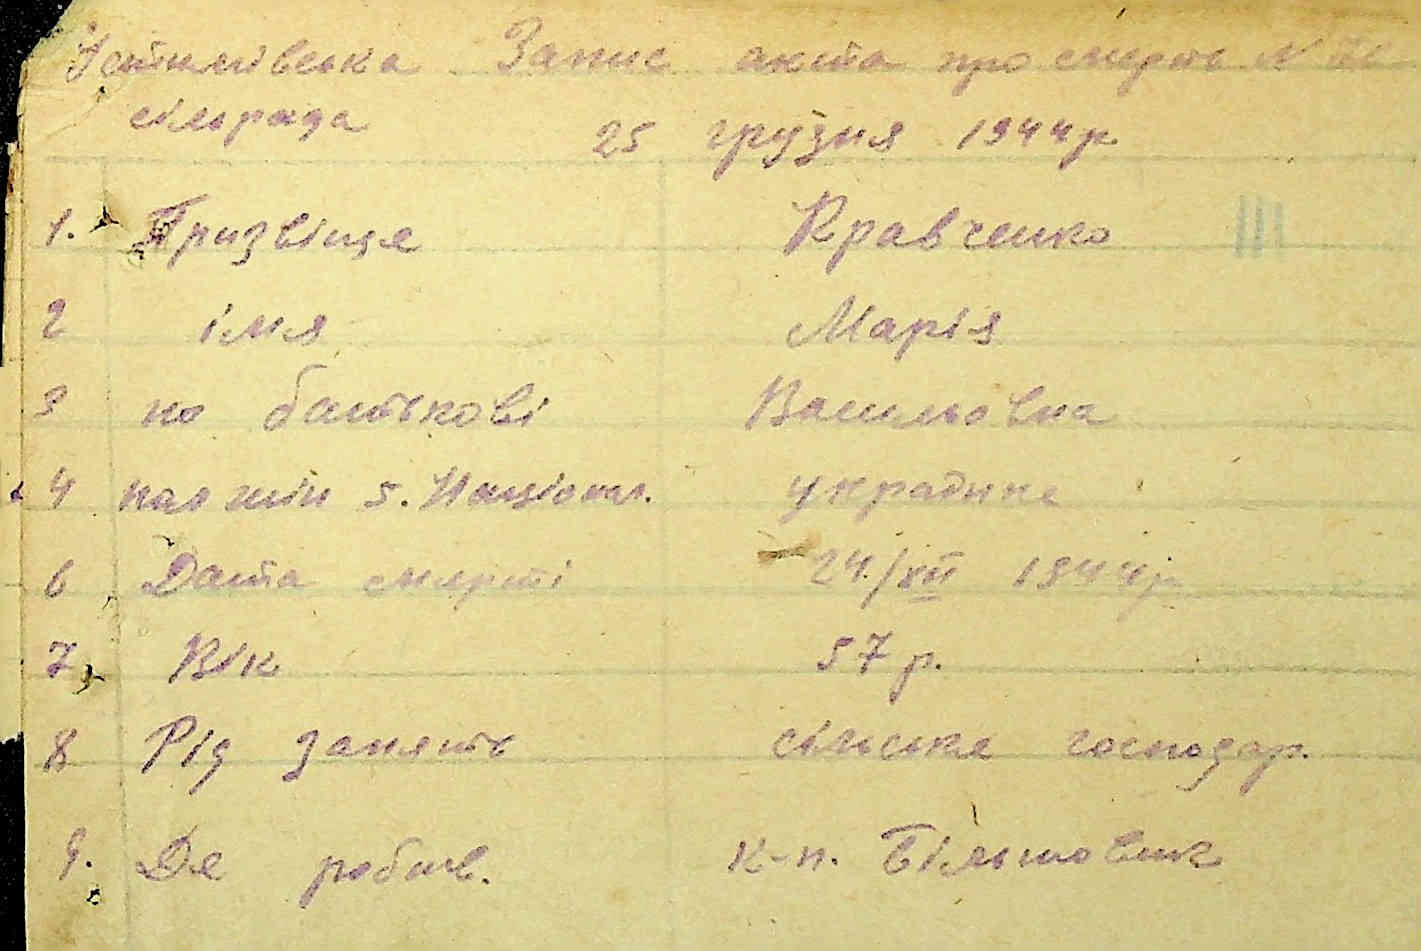 Устимівська Запис акта про смерть N
сільрада 25 грудня 1944р
1. Призвіще Кравченко
2 імя Марія
3 по батькові Васильовна
4 чол жін 5. Націонал. українка
6 Дата смерті 24/XII 1944р
7 Вік 57 р.
8 Рід занять сільське господар.
9. Де робив. к-п. Більшовик